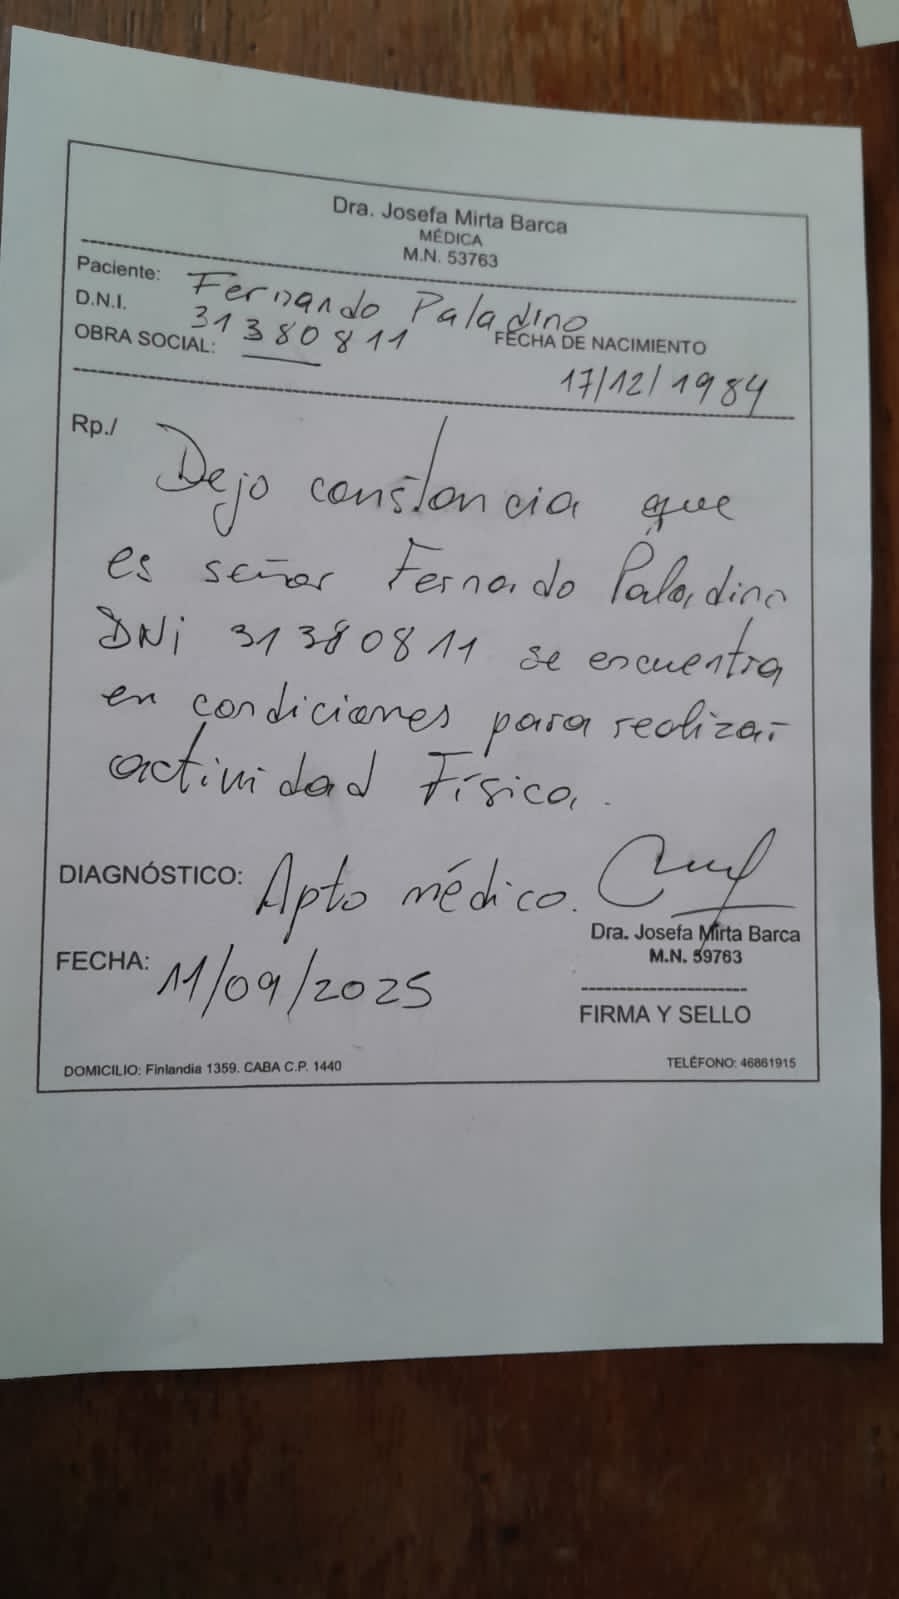 Dra. Josefa Mirta Barca
MÉDICA
M.N. 53763
Paciente: Fernando Paladino
D.N.I. 31380811
OBRA SOCIAL: —
FECHA DE NACIMIENTO
17/12/1984
Rp./
Dejo constancia que
es señor Fernando Paladino
DNi 31380811 se encuentra
en condiciones para realizar
actividad Física.
DIAGNÓSTICO: Apto médico.
Dra. Josefa Mirta Barca
M.N. 59763
FECHA: 11/09/2025
FIRMA Y SELLO
DOMICILIO: Finlandia 1359. CABA C.P. 1440
TELÉFONO: 46861915